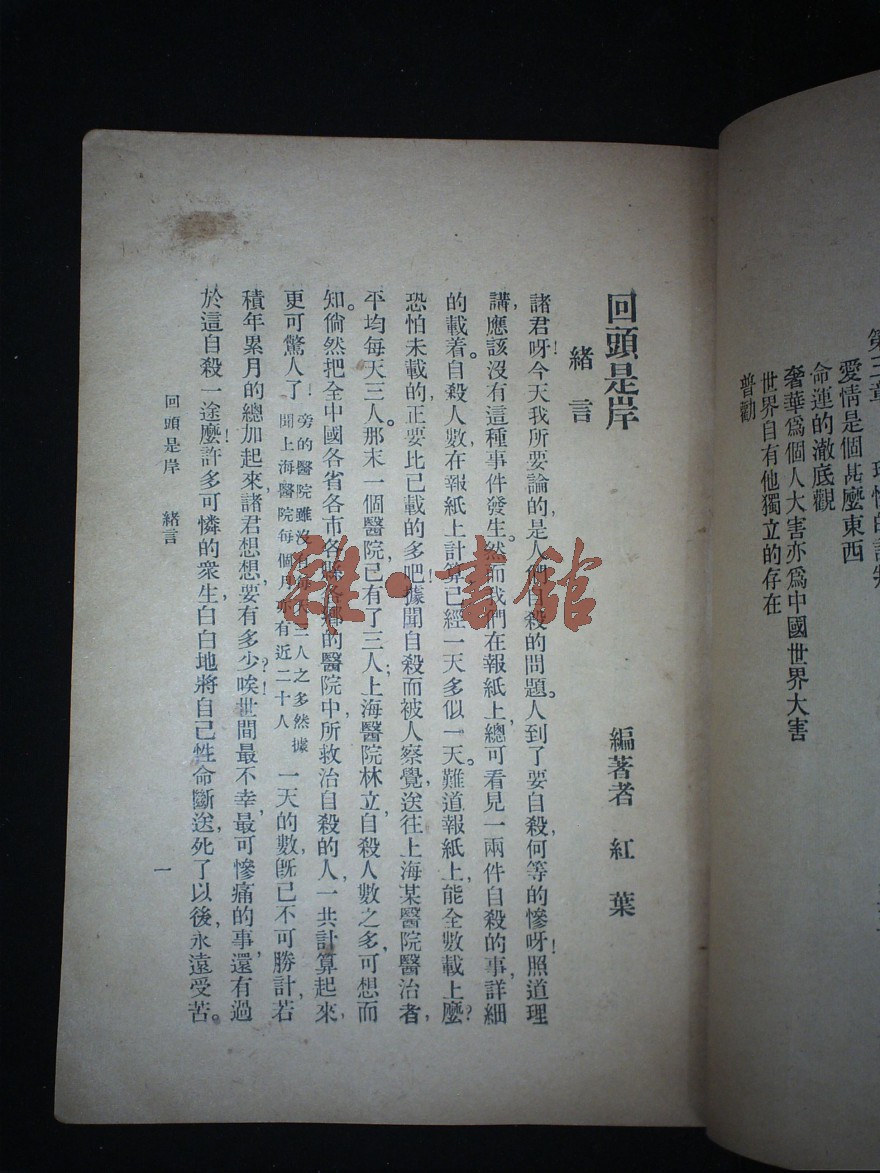 第三章
愛情是個甚麼東西
命運的澈底觀
奢華爲個人大害亦爲中國世界大害
世界自有他獨立的存在
普勸
回頭是岸
編著者 紅葉
緒言
諸君呀!今天我所要論的,是人們自殺的問題。人到了要自殺,何等的慘呀!照道理
講,應該沒有這種事件發生。然而我們在報紙上,總可看見一兩件自殺的事,詳細
的載着。自殺人數,在報紙上計算,已經一天多似一天。難道報紙上,能全數載上麼?
恐怕未載的,正要比已載的多吧!據聞自殺而被人察覺,送往上海某醫院醫治者,
平均每天三人。那末一個醫院,已有了三人,上海醫院林立,自殺人數之多,可想而
知。倘然把全中國各省各市各縣各鄉的醫院中所救治自殺的人,一共計算起來,
更可驚人了!旁的醫院雖沒有每天三人之多然據聞上海醫院每個月亦有近二十人 一天的數,既已不可勝計,若
積年累月的總加起來,諸君想想,要有多少?唉!世間最不幸,最可慘痛的事,還有過
於這自殺一途麼!許多可憐的衆生,白白地將自己性命斷送,死了以後,永遠受苦。
回頭是岸 緒言
一
雜·書館